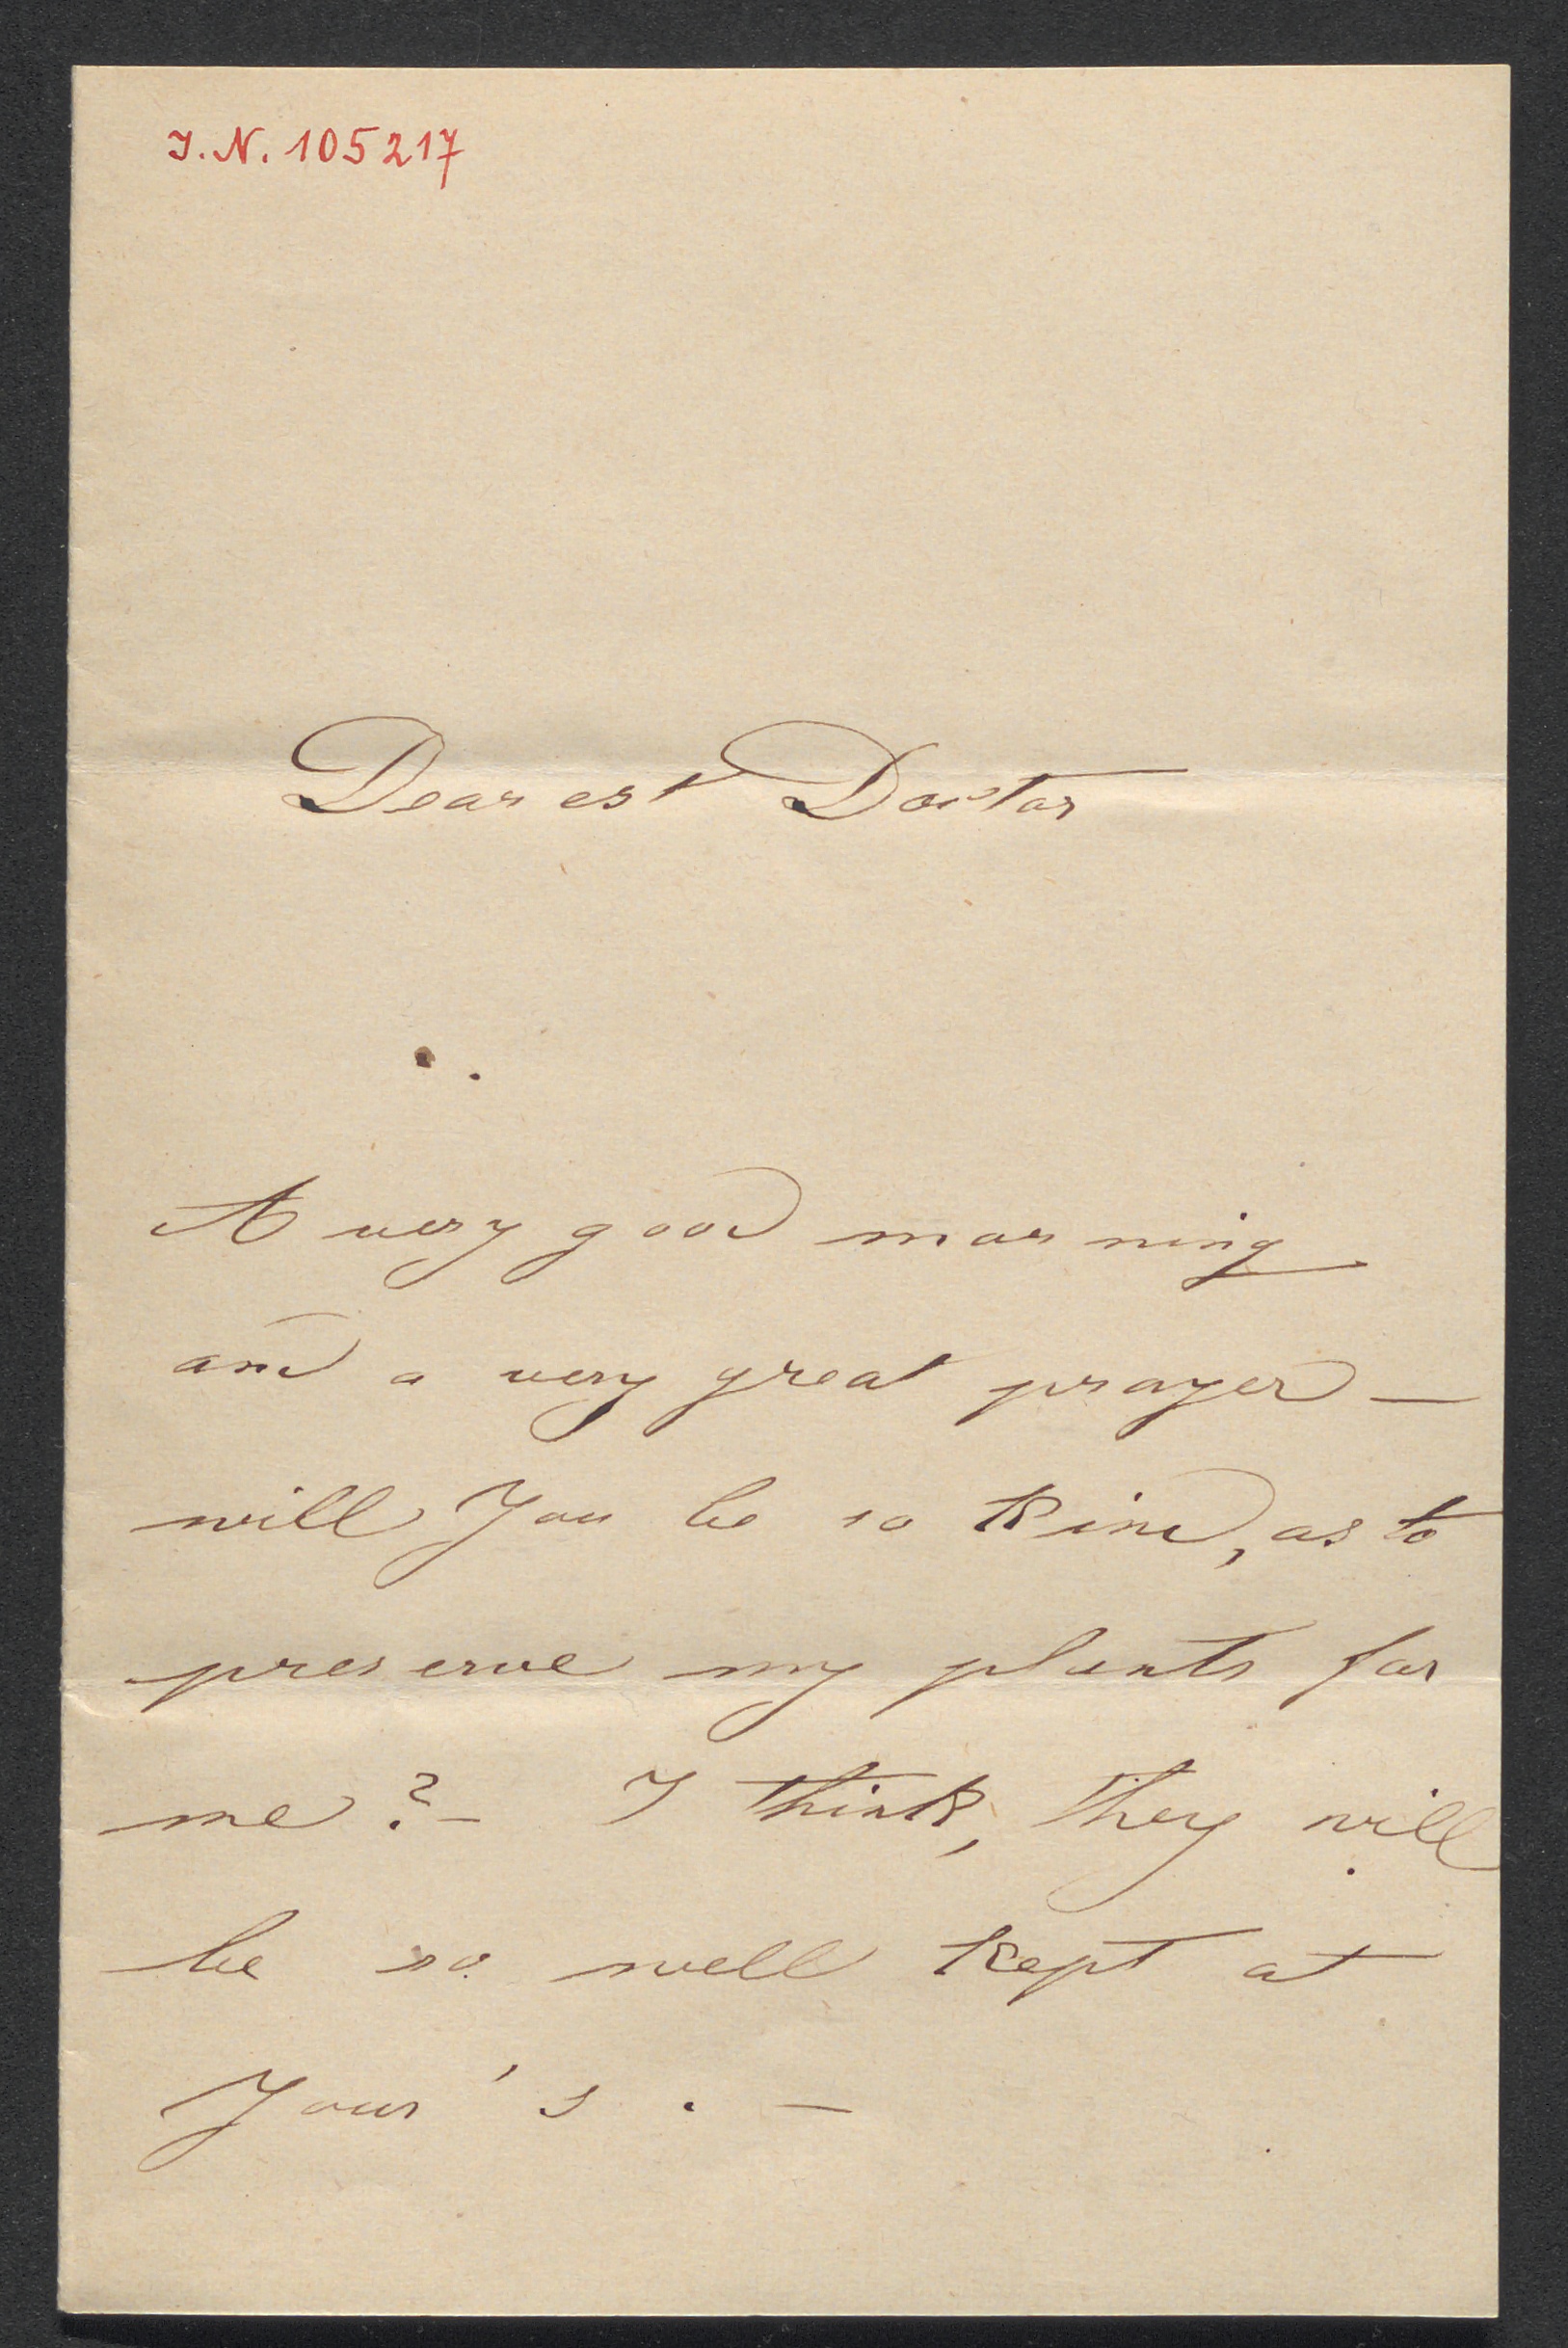 I.N. 105217
Dearest Doctor
A very good morning
and a very great prayer —
will You be so kind, as to
preserve my plants for
me? — I think, they will
be so well kept at
Your's. —